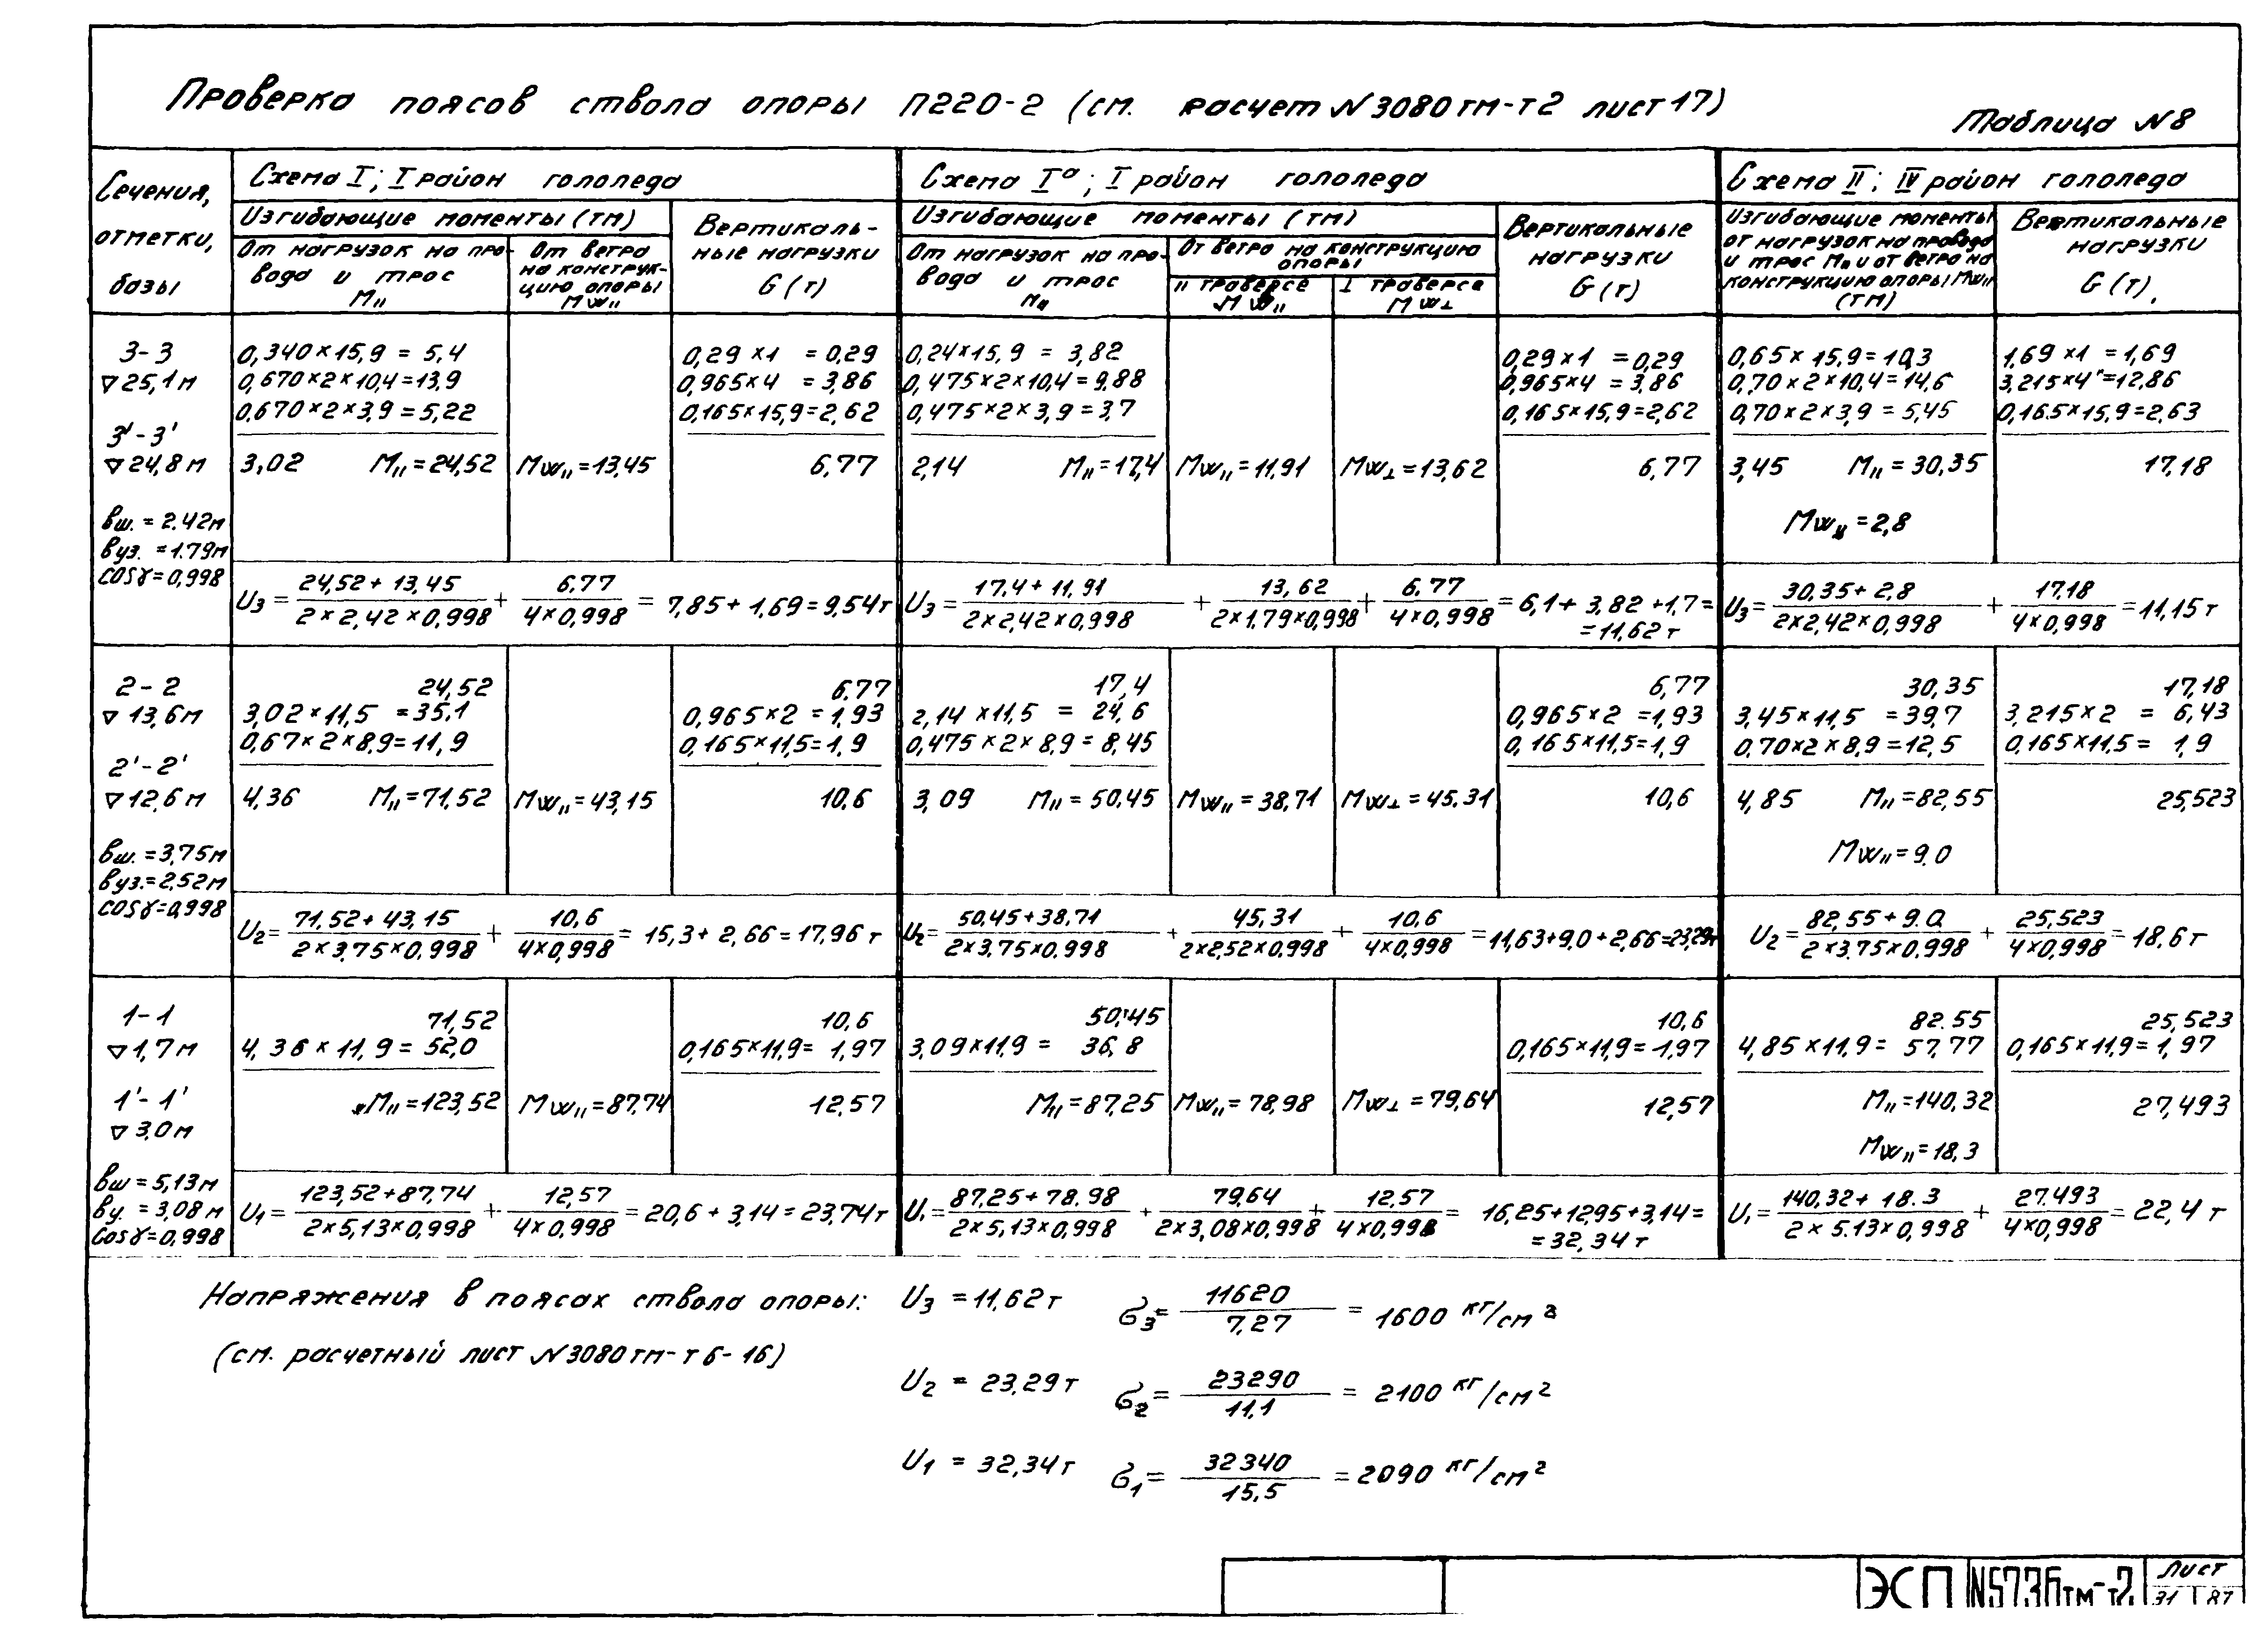 Проверка поясов ствола опоры П220-2 (см. расчет N3080тм-т2 лист 17)
Таблица N8
Сечения,
отметки,
базы
Схема I; I район гололеда
Изгибающие моменты (тм)
От нагрузок на про-
вода и трос
M॥
От ветра
на конструк-
цию опоры
Mw॥
Вертикаль-
ные нагрузки
G (т)
Схема Iа; I район гололеда
Изгибающие моменты (тм)
От нагрузок на про-
вода и трос
M॥
От ветра на конструкцию
опоры
॥ траверсе
Mw॥
I траверсе
Mw⊥
Вертикальные
нагрузки
G (т)
Схема II; IV район гололеда
Изгибающие моменты
от нагрузок на провода
и трос M॥ и от ветра на
конструкцию опоры Mw॥
(тм)
Вертикальные
нагрузки
G (т).
3-3
▽25,1м
3'-3'
▽24,8м
вш. = 2.42м
вуз. = 1.79м
cosγ=0,998
0,340×15,9 = 5,4
0,670×2×10,4=13,9
0,670×2×3,9=5,22
3,02 M॥=24,52
Mw॥=13,45
0,29×1 = 0,29
0,965×4 = 3,86
0,165×15,9=2,62
6,77
0,24×15,9 = 3,82
0,475×2×10,4=9,88
0,475×2×3,9=3,7
2,14 M॥=17,4
Mw॥=11,91
Mw⊥=13,62
0,29×1 =0,29
0,965×4 = 3,86
0,165×15,9=2,62
6,77
0,65×15,9=10,3
0,70×2×10,4=14,6
0,70×2×3,9 = 5,45
3,45 M॥ = 30,35
Mw॥ =2,8
1,69×1 =1,69
3,215×4 =12,86
0,165×15,9=2,63
17,18
U3 = 24,52 + 13,45 / 2×2,42×0,998 + 6,77 / 4×0,998 = 7,85 + 1,69 = 9,54т
U3 = 17,4 + 11,91 / 2×2,42×0,998 + 13,62 / 2×1.79×0,998 + 6,77 / 4×0,998 = 6,1 + 3,82 + 1,7 =
= 11,62 т
U3 = 30,35 + 2,8 / 2×2,42×0,998 + 17,18 / 4×0,998 = 11,15 т
2-2
▽13,6м
2'-2'
▽12,6м
вш. =3,75м
вуз.=2,52м
cosγ=0,998
24,52
3,02×11,5 =35,1
0,67×2×8,9=11,9
4,36 M॥=71,52
Mw॥=43,15
6.77
0,965×2 = 1,93
0,165×11,5=1,9
10,6
17,4
2,14×11,5 = 24,6
0,475×2×8,9 = 8,45
3,09 M॥ = 50,45
Mw॥=38,71
Mw⊥=45.31
6,77
0,965×2 =1,93
0,165×11,5=1,9
10,6
30,35
3,45×11,5 =39,7
0,70×2×8,9=12,5
4,85 M॥=82,55
Mw॥=9.0
17,18
3,215×2 = 6,43
0,165×11,5= 1,9
25,523
U2 = 71,52 + 43,15 / 2×3.75×0.998 + 10,6 / 4×0,998 = 15,3 + 2,66 = 17,96 т
U2 = 50,45+38,71 / 2×3,75×0.998 + 45,31 / 2×2,52×0.998 + 10,6 / 4×0,998 = 11,63+9,0+2,66=23,29т
U2 = 82,55 + 9.0 / 2×3.75×0.998 + 25,523 / 4×0,998 = 18,6 т
1-1
▽1,7м
1'-1'
▽3,0м
вш = 5,13м
ву. = 3,08м
Cosγ=0,998
71,52
4,36×11,9= 52,0
M॥=123,52
Mw॥=87,74
10,6
0,165×11,9= 1,97
12,57
50,45
3,09×11,9 = 36,8
M॥=87,25
Mw॥=78,98
Mw⊥=79,64
10,6
0,165×11,9=1,97
12,57
82.55
4,85×11,9= 57,77
M॥=140,32
Mw॥=18,3
25,523
0,165×11,9=1,97
27,493
U1 = 123,52+87,74 / 2×5,13×0,998 + 12,57 / 4×0,998 = 20,6 + 3,14 = 23,74т
U1 = 87,25+78.98 / 2×5,13×0,998 + 79,64 / 2×3,08×0,998 + 12,57 / 4×0,998 = 16,25+12,95+3,14=
= 32,34 т
U1 = 140,32+ 18.3 / 2×5.13×0,998 + 27.493 / 4×0,998 = 22,4 т
Напряжения в поясах ствола опоры:
(см. расчетный лист N3080тм-т6-16)
U3 = 11,62т σ3= 11620 / 7,27 = 1600 кг/см2
U2 = 23,29т σ2= 23290 / 11,1 = 2100 кг/см2
U1 = 32,34т σ1= 32340 / 15,5 = 2090 кг/см2
ЭСП N5736тм-т2 Лист
31 87